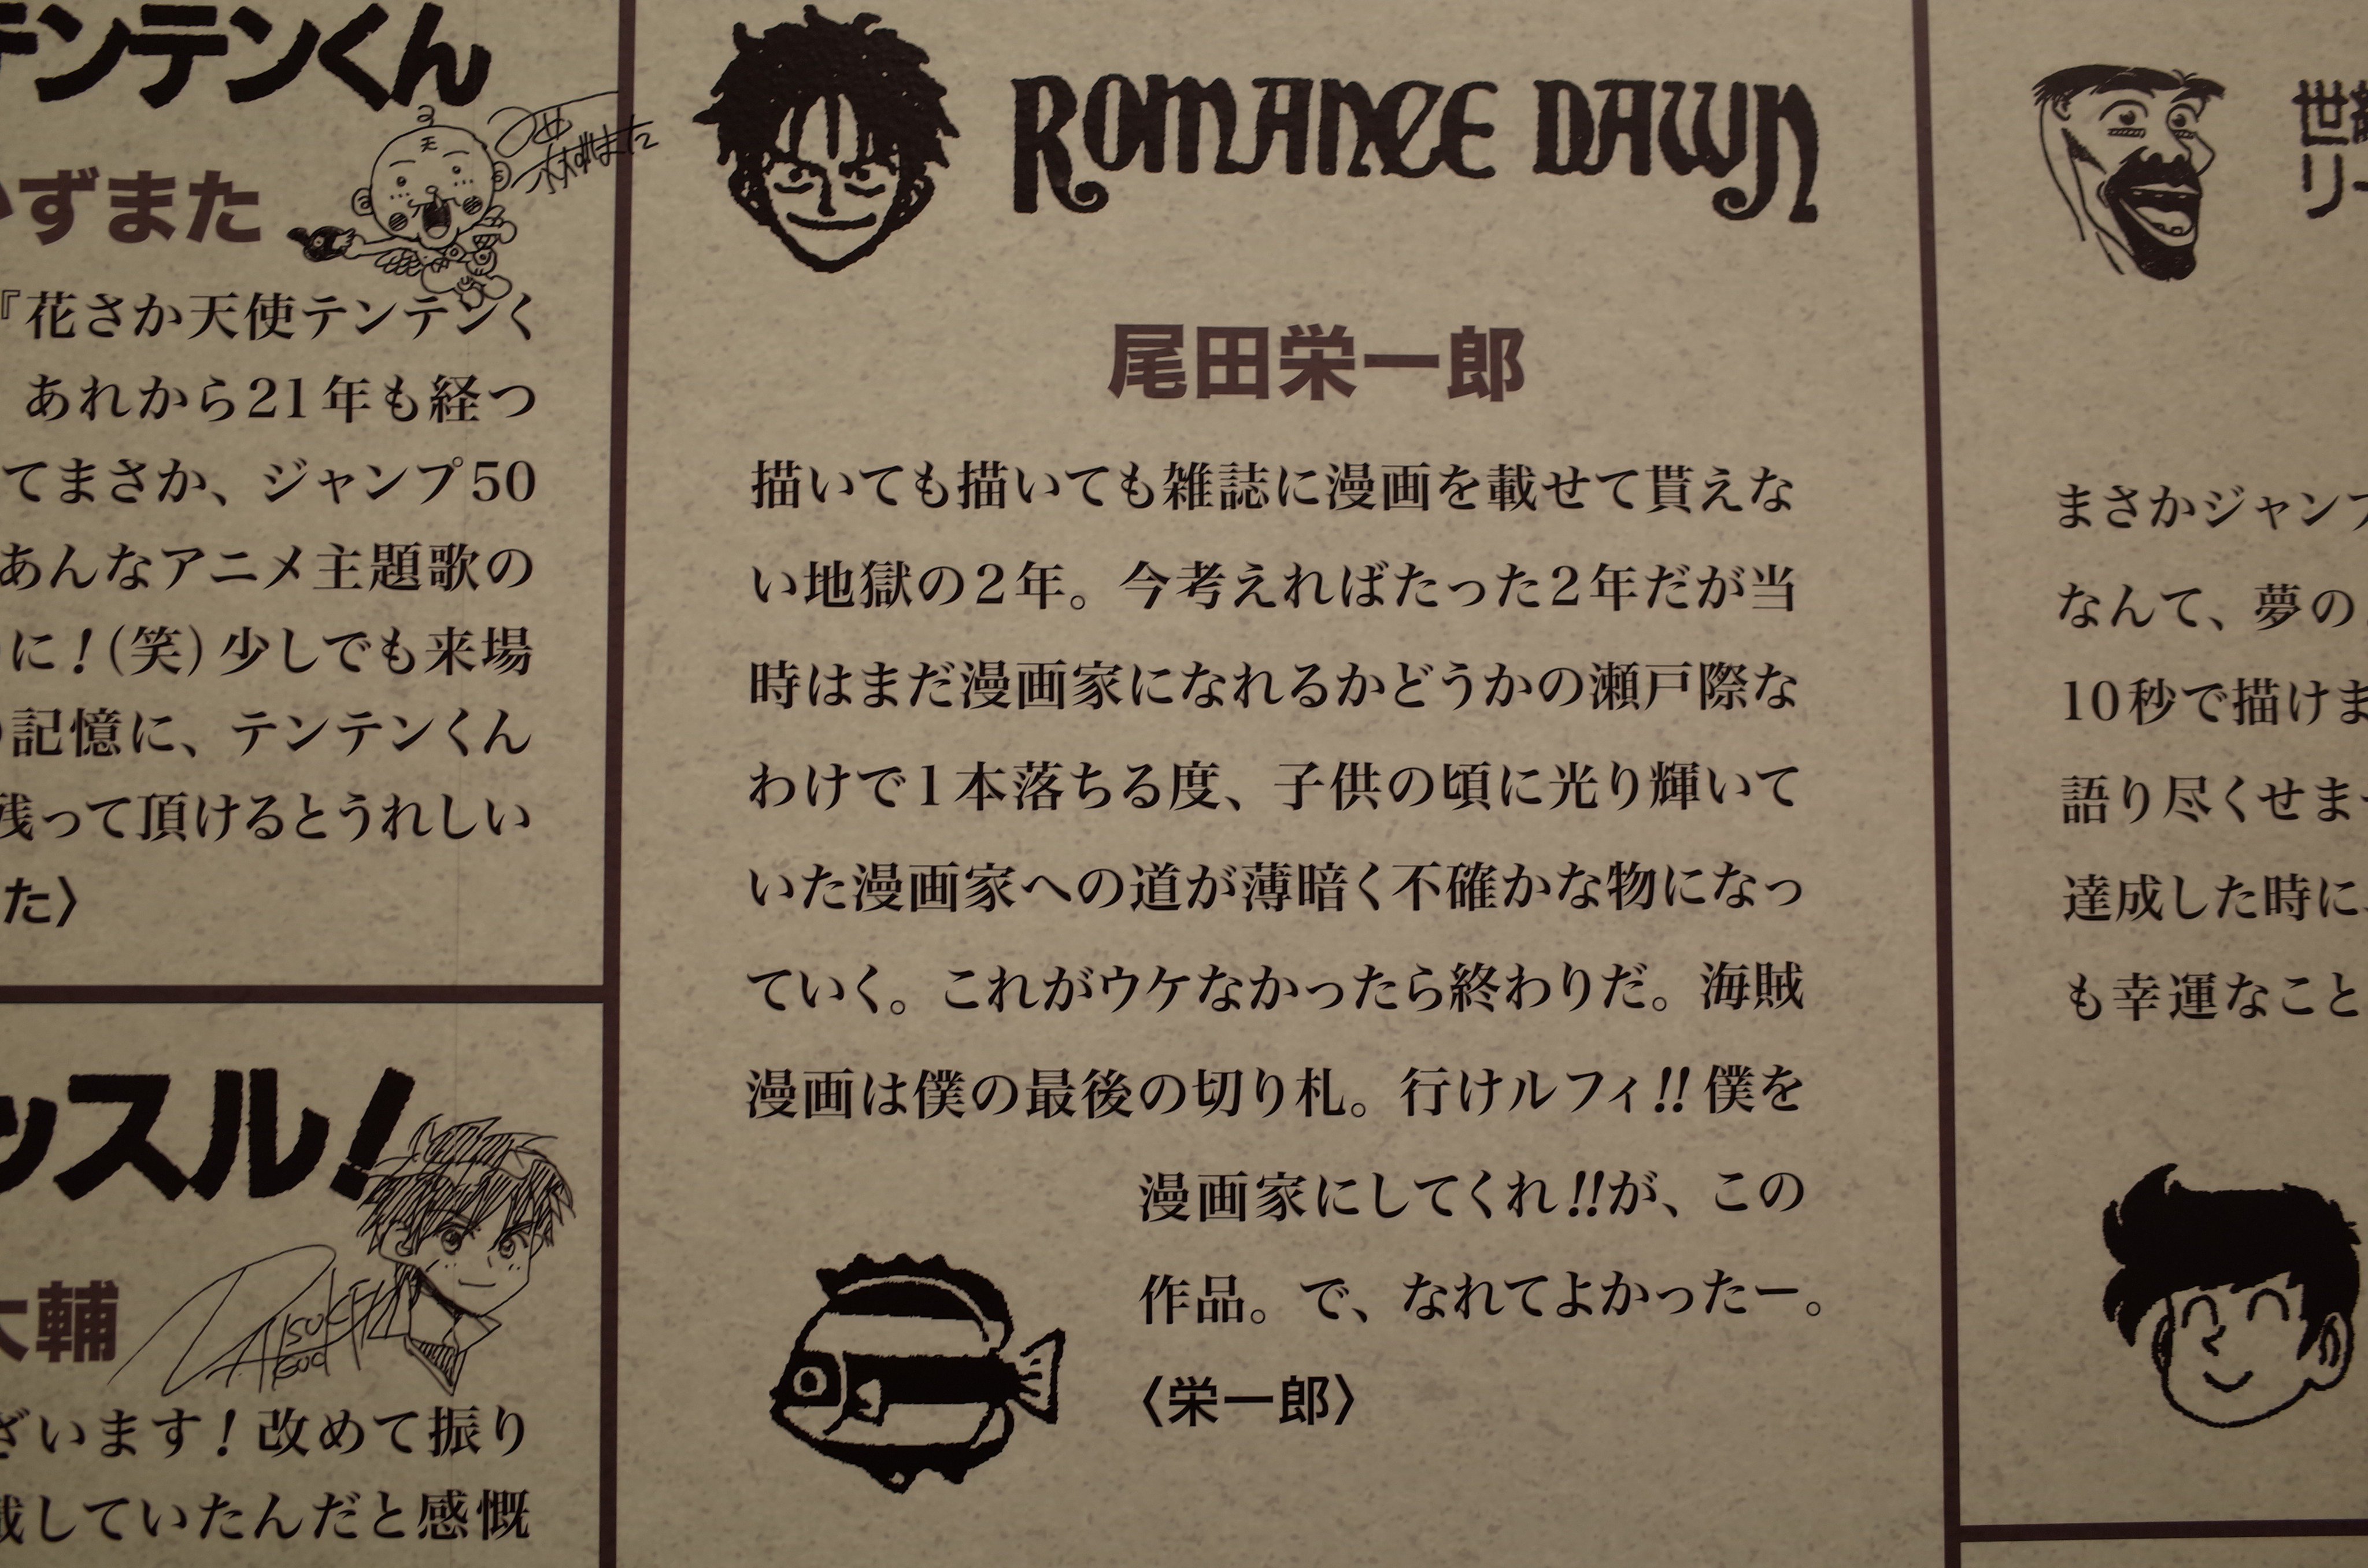 テンテンくん
ずまた
『花さか天使テンテンく
あれから21年も経つ
てまさか、ジャンプ50
あんなアニメ主題歌の
に！(笑)少しでも来場
記憶に、テンテンくん
残って頂けるとうれしい
た〉
ッスル！
大輔
ざいます！改めて振り
載していたんだと感慨
ROMANCE DAWN
尾田栄一郎
描いても描いても雑誌に漫画を載せて貰えな
い地獄の2年。今考えればたった2年だが当
時はまだ漫画家になれるかどうかの瀬戸際な
わけで1本落ちる度、子供の頃に光り輝いて
いた漫画家への道が薄暗く不確かな物になっ
ていく。これがウケなかったら終わりだ。海賊
漫画は僕の最後の切り札。行けルフィ!!僕を
漫画家にしてくれ!!が、この
作品。で、なれてよかったー。
〈栄一郎〉
世
リー
まさかジャンプ
なんて、夢の
10秒で描けま
語り尽くせませ
達成した時に
も幸運なこと